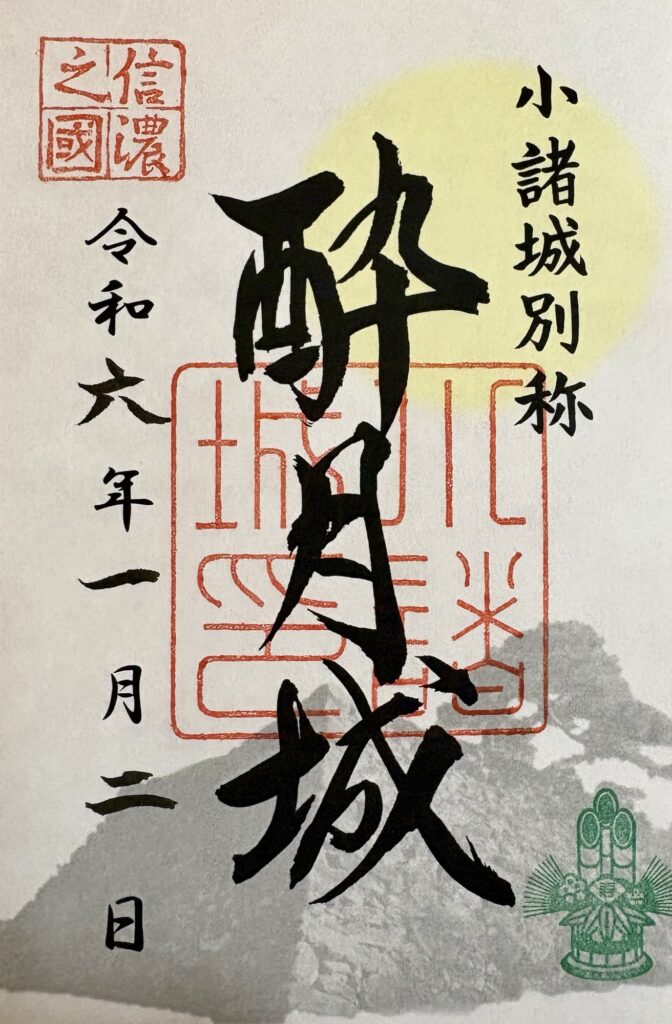 小諸城別称
酔月城
小諸城印
信濃之國
令和六年一月二日